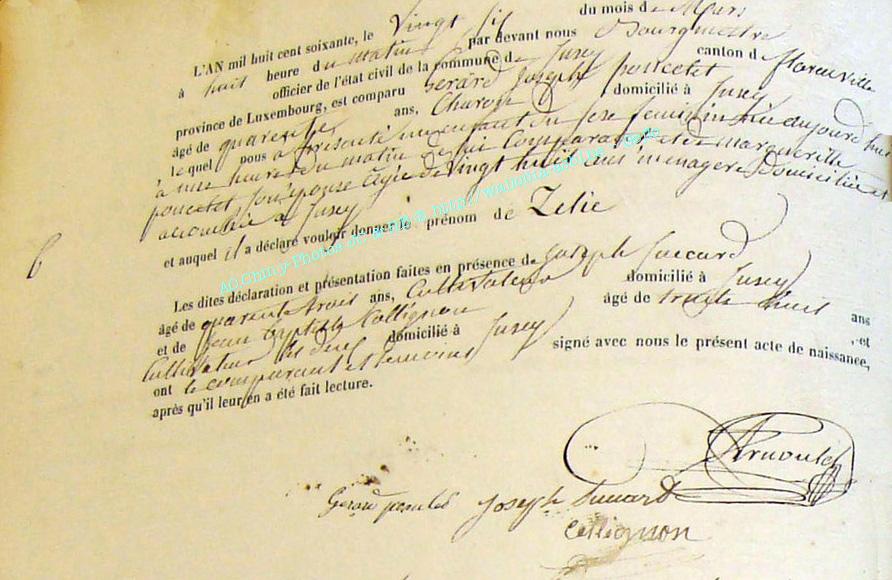 L'AN mil huit cent soixante, le Vingt six du mois de Mars
à huit heure du matin par devant nous Bourgmestre
officier de l'état civil de la commune de Jusey canton d florenville
province de Luxembourg, est comparu Gérard Joseph poncelet
âgé de quarante ans, domicilié à Jusey
, lequel nous a présenté un enfant du sexe féminin née aujourd'hui
à une heure du matin de lui comparant et de Marguerite
poncelet son épouse âgée de Vingt huit ans ménagère Domiciliée et
accouchée à Jusey
et auquel il a déclaré vouloir donner le prénom de Zélie
Les dites déclaration et présentation faites en présence de Joseph
âgé de quarante trois ans, Cultivateur domicilié à Jusey
et de Jean Baptiste Collignon âgé de trente huit ans
Cultivateur domicilié à Jusey , et
ont le comparant et témoins signé avec nous le présent acte de naissance,
après qu'il leur en a été fait lecture.
Arnould
Joseph
Collignon